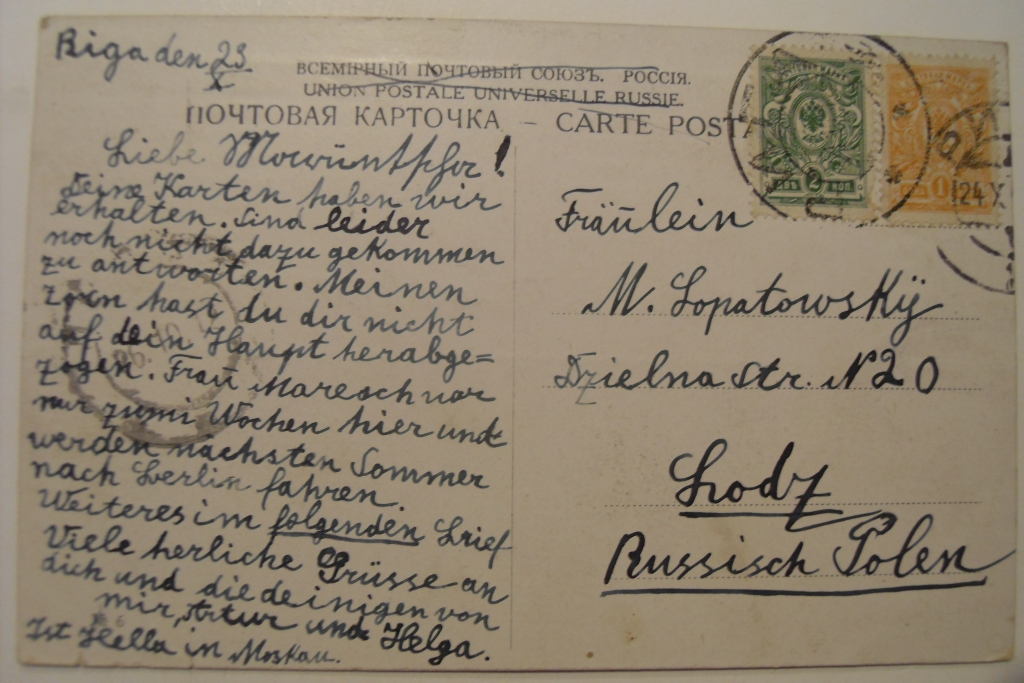 Riga den 23
X
ВСЕМІРНЫЙ ПОЧТОВЫЙ СОЮЗЪ. РОССІЯ.
UNION POSTALE UNIVERSELLE RUSSIE.
ПОЧТОВАЯ КАРТОЧКА – CARTE POSTA
Liebe
Deine Karten haben wir
erhalten. Sind leider
noch nicht dazu gekommen
zu antworten. Meinen
Zorn hast du dir nicht
auf dein Haupt herabge=
zogen. Fraū Maresch war
nur zwei Wochen hier und
werden nächsten Sommer
nach Berlin fahren.
Weiteres im folgenden Brief
Viele herliche Grüsse an
dich und die deinigen von
mir, Artur und Helga.
Ist Hella in Moskau.
2 КОП.
1
24 X
Fräulein
M. Lopatowskÿ
Dzielna str. N 20
Lodz
Russisch Polen